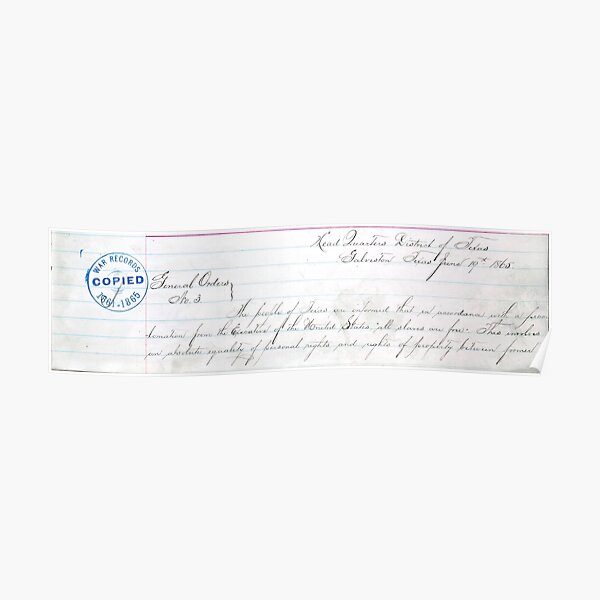 Head Quarters District of Texas
Galveston Texas June 19th 1865.
WAR RECORDS
COPIED
1861-1865
General Orders
No. 3.
The people of Texas are informed that in accordance with a procla-
mation from the Executive of the United States, "all slaves are free." This involves
an absolute equality of personal rights and rights of property between former